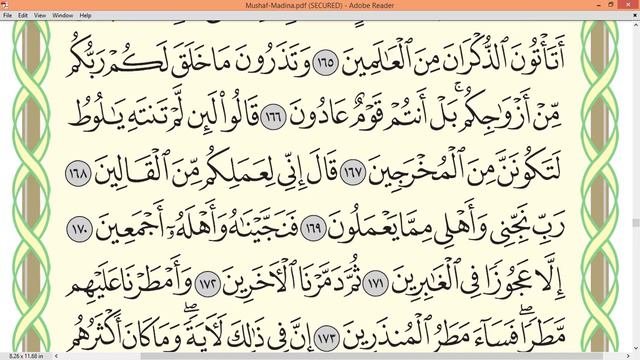 Mushaf-Madina.pdf (SECURED) - Adobe Reader
File Edit View Window Help
أَتَأْتُونَ ٱلذُّكْرَانَ مِنَ ٱلْعَٰلَمِينَ ١٦٥ وَتَذَرُونَ مَا خَلَقَ لَكُمْ رَبُّكُم
مِّنْ أَزْوَٰجِكُمۚ بَلْ أَنتُمْ قَوْمٌ عَادُونَ ١٦٦ قَالُوا۟ لَئِن لَّمْ تَنتَهِ يَٰلُوطُ
لَتَكُونَنَّ مِنَ ٱلْمُخْرَجِينَ ١٦٧ قَالَ إِنِّى لِعَمَلِكُم مِّنَ ٱلْقَالِينَ ١٦٨
رَبِّ نَجِّنِى وَأَهْلِى مِمَّا يَعْمَلُونَ ١٦٩ فَنَجَّيْنَٰهُ وَأَهْلَهُۥٓ أَجْمَعِينَ ١٧٠
إِلَّا عَجُوزًا فِى ٱلْغَٰبِرِينَ ١٧١ ثُمَّ دَمَّرْنَا ٱلْءَاخَرِينَ ١٧٢ وَأَمْطَرْنَا عَلَيْهِم
مَّطَرًاۖ فَسَآءَ مَطَرُ ٱلْمُنذَرِينَ ١٧٣ إِنَّ فِى ذَٰلِكَ لَءَايَةًۖ وَمَا كَانَ أَكْثَرُهُم
8.26 x 11.68 in